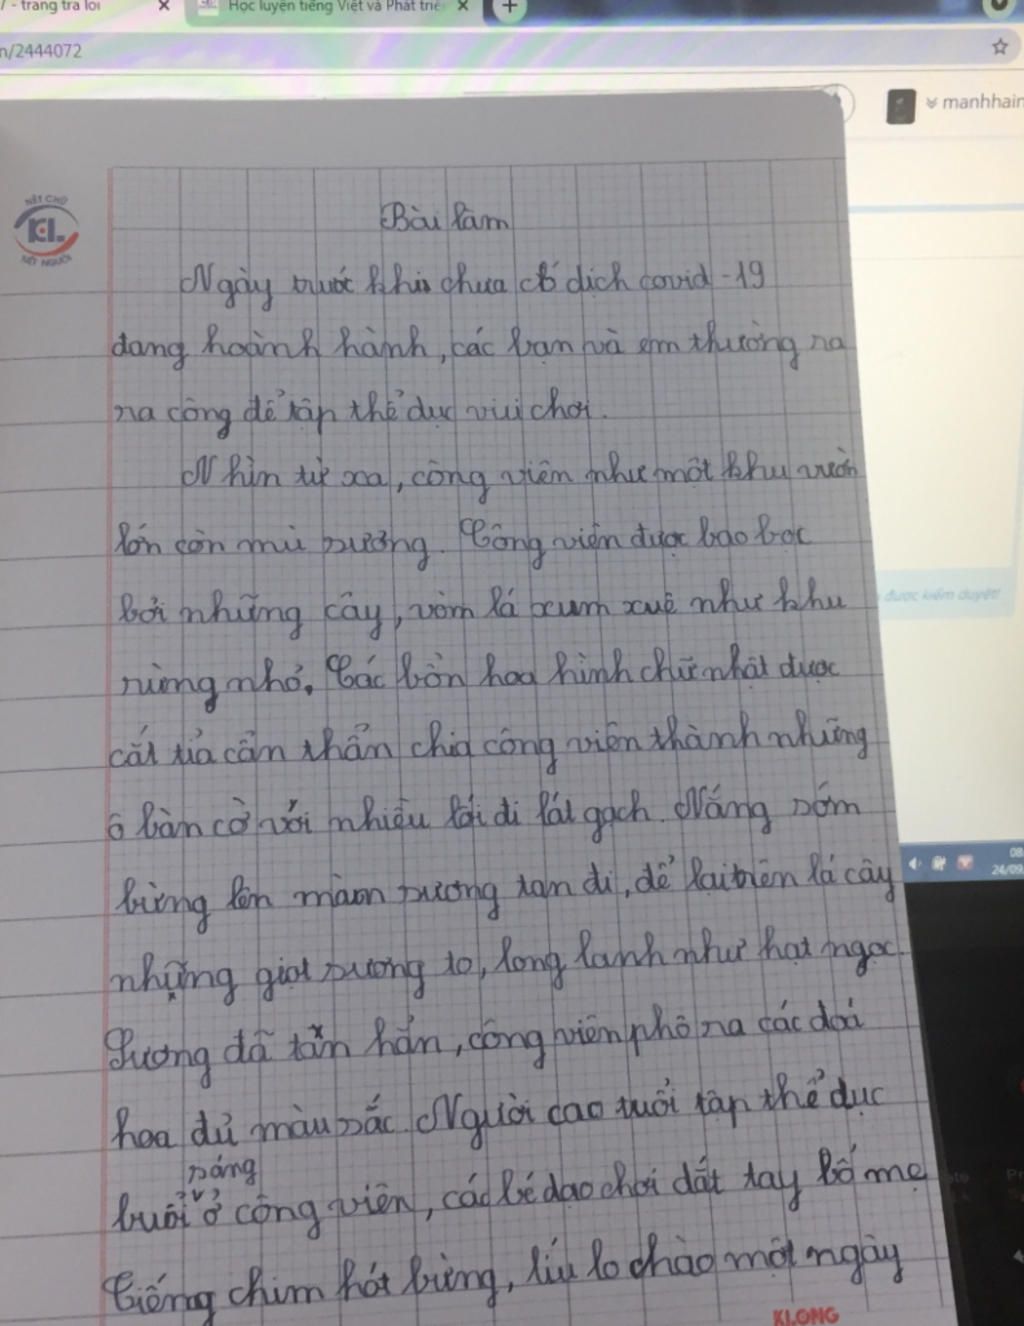 - trang tra loi
Học luyện tiếng Việt và Phát triể
n/2444072
manhhain
NÉT CHỮ
KL
NẾT NGƯỜI
Bài làm
Ngày trước khi chưa có dịch covid-19
đang hoành hành, các bạn và em thường ra
ra công để tập thể dục vui chơi.
Nhìn từ xa, công viên như một khu vườn
lớn còn mù sương. Công viên được bao bọc
bởi những cây, vòm lá xum xuê như khu
rừng nhỏ. Các bồn hoa hình chữ nhật được
cắt tỉa cẩn thẩn chia công viên thành những
ô bàn cờ với nhiều lối đi lát gạch. Nắng sớm
bừng lên màn sương tan đi, để lại trên lá cây
những giọt sương to, long lanh như hạt ngọc.
Sương đã tắn hẳn, công viên phô ra các đoá
hoa đủ màu sắc. Người cao tuổi tập thể dục
sáng
buổi ở công viên, các bé dạo chơi dắt tay bố mẹ
Tiếng chim hót bừng, líu lo chào một ngày
KLONG
được kiểm duyệt!
08
24/09